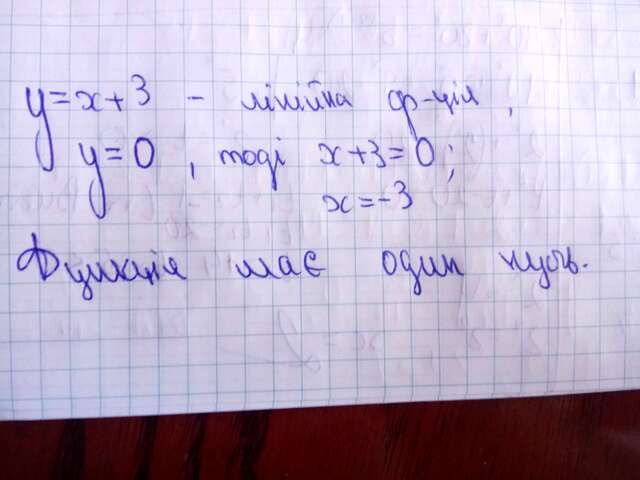 y=x+3 - лінійна ф-ція,
y=0, тоді x+3=0;
x=-3
Функція має один нуль.